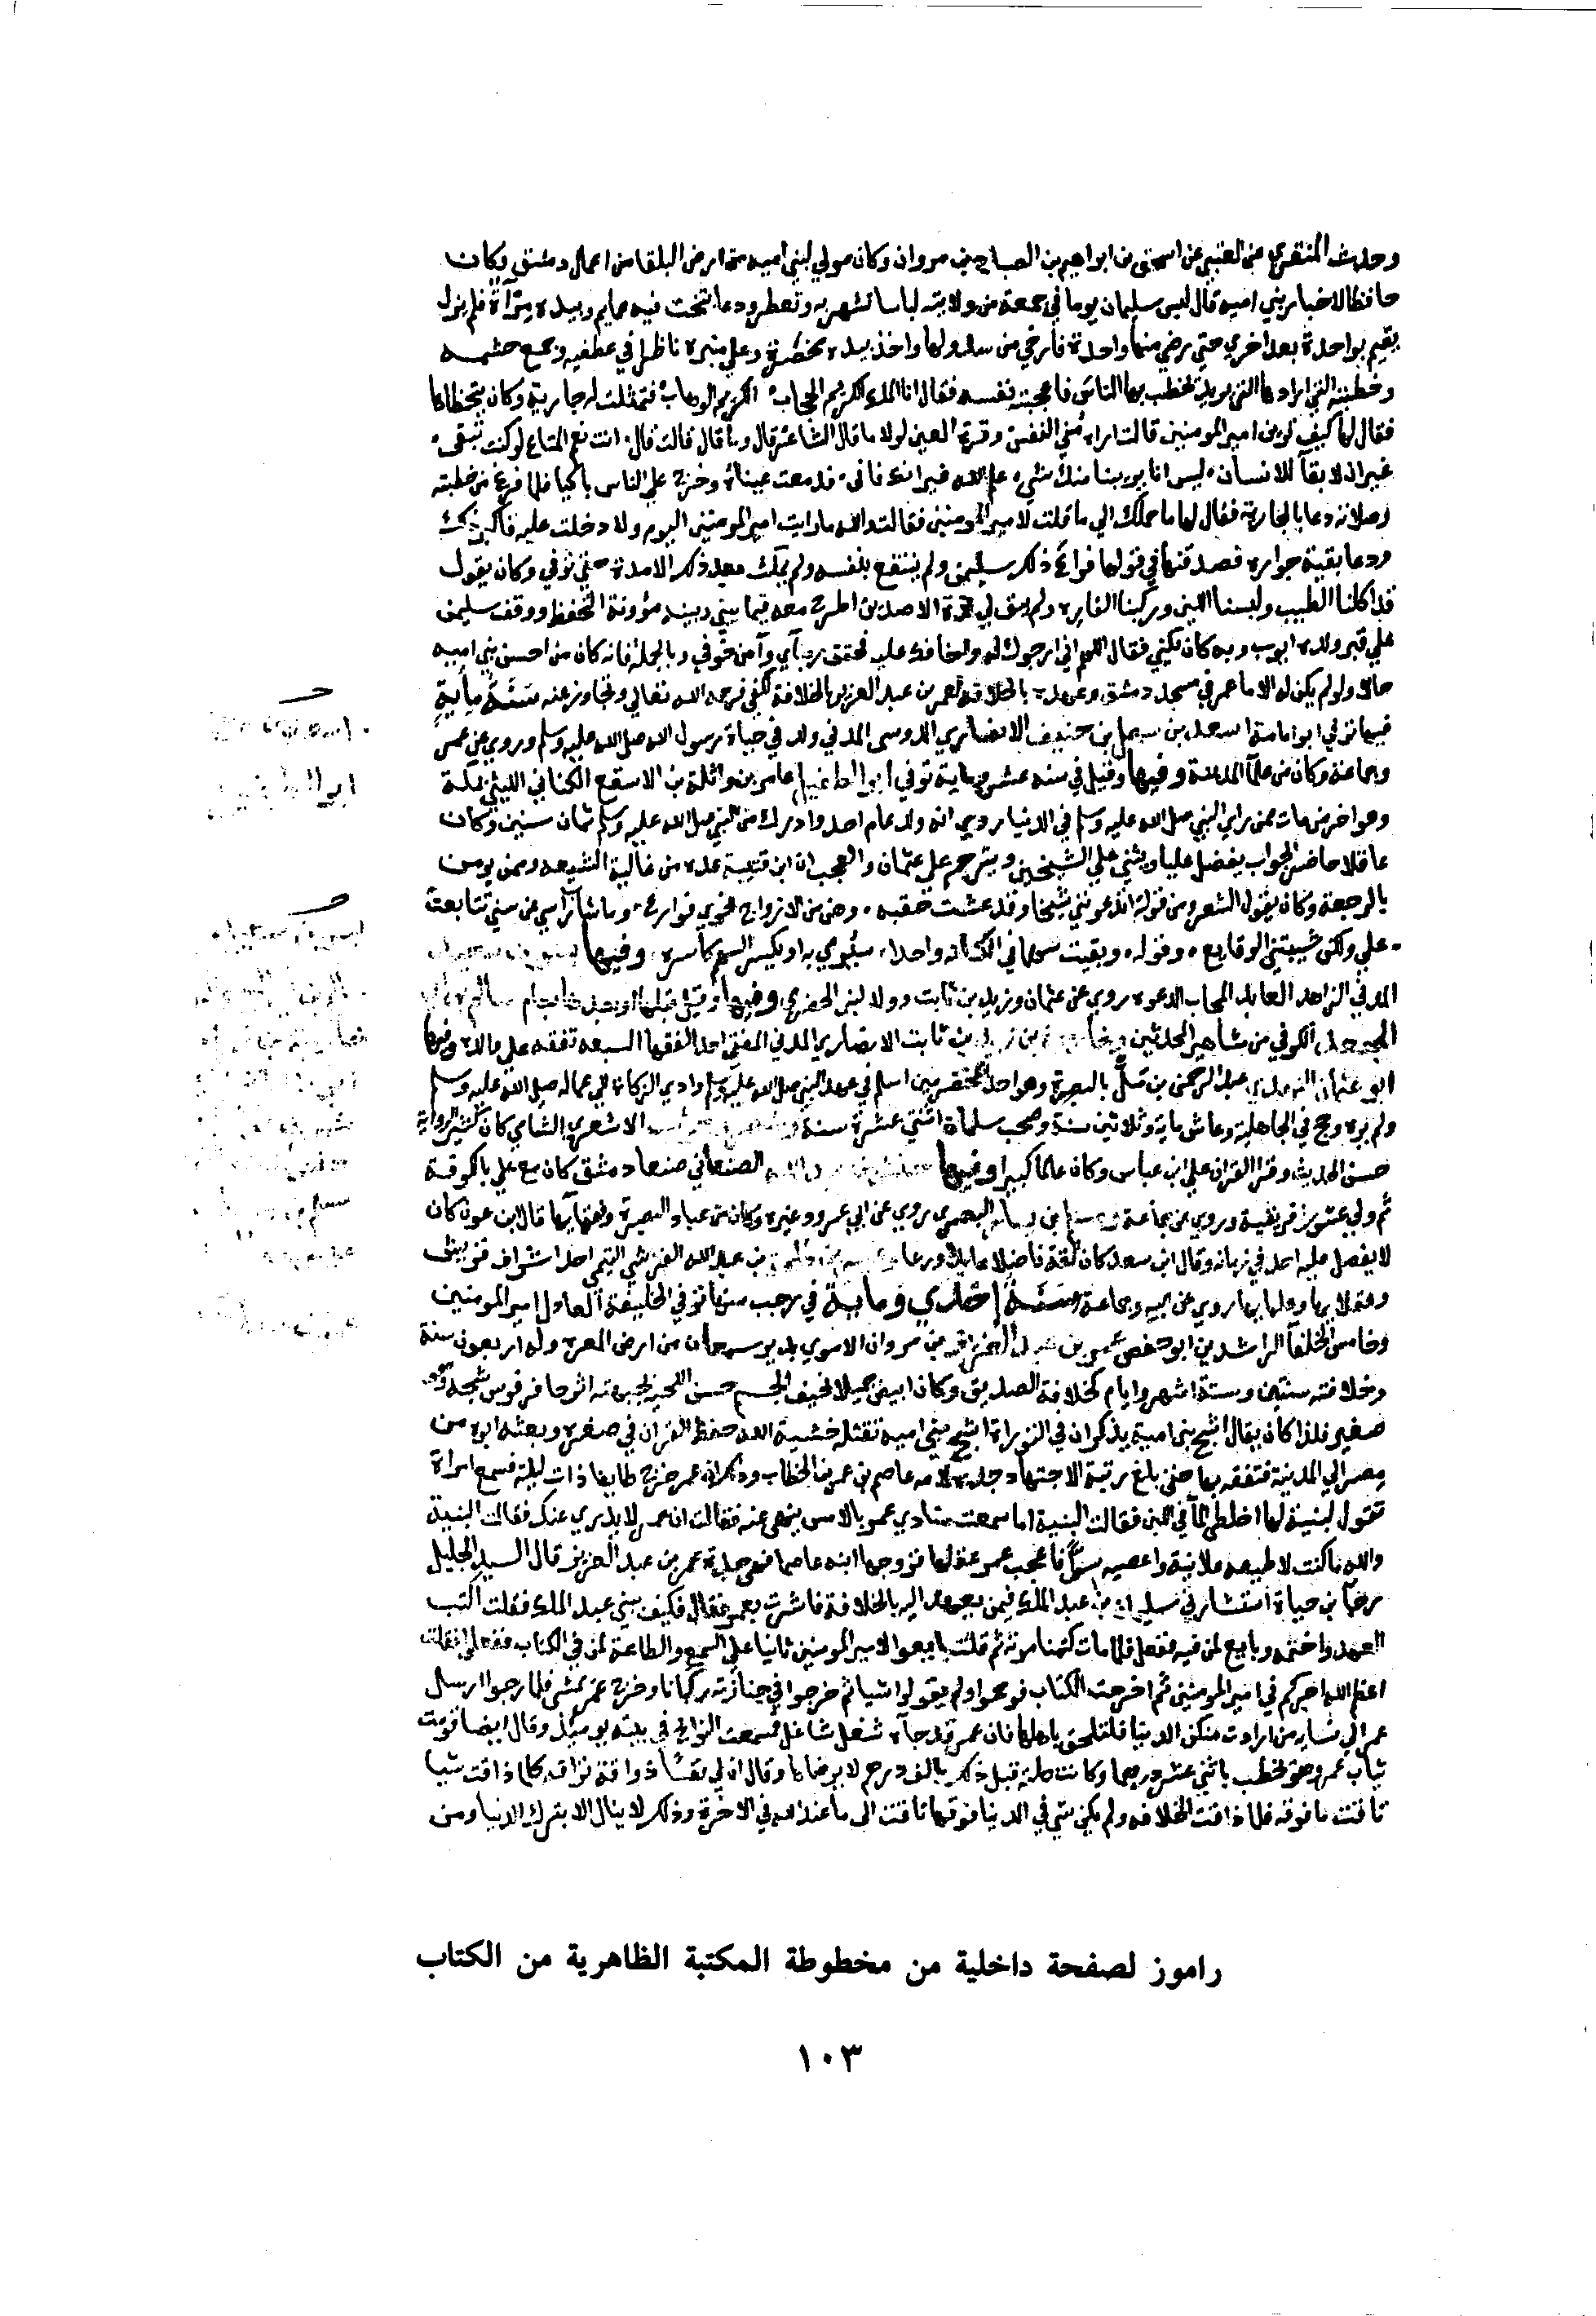 وحدث المنقري عن العتبي عن اسحق بن ابراهيم بن الصباح بن مروان وكان مولي لبني اميه من ارض البلقا من اعمال دمشق وكان
حافظا لاخبار بني اميه قال لبس سليمان يوما في جمعة من ولايته لباسا تشهر به وتعطر ودعا بتخت فيه عمايم وبيده مرآة فلم يزل
يعتم بواحدة بعد اخري حتي رضي منها واحدة فارخي من سدولها واخذ بيده مخصرة وعلي منبره ناظرا في عطفيه وجمع حشمه
وخطبته التي ارادها التي يريد يخطب بها الناس فاعجبته نفسه فقال انا الملك الكريم الحجاب الكريم الوهاب فتمثلت له جارية وكان يتحظاها
فقال لها كيف ترين امير المومنين قالت اراه مني النفس وقرة العين لولا ما قال الشاعر قال وما قال قالت قال انت نعم المتاع لو كنت تبقى
غير ان لا بقآ للانسان ليس انا يريبنا منك شيء علم الله غير انك فاني فدمعت عيناه وخرج علي الناس باكيا فلما فرغ من خطبته
وصلاته دعا بالجارية فقال لها ما حملك الي ما قلت لامير المومنين فقالت والله ما رايت امير المومنين اليوم ولا دخلت عليه فاكبر ذلك
ودعا بقيمة جواره فصدقتها في قولها فراع ذلك سليمن ولم ينتفع بنفسه ولم يمكث بعد ذلك الا مدة حتي توفي وكان يقول
قد اكلنا الطيب ولبسنا اللين وركبنا الفاره ولم يبق لي لذة الا صديق اطرح معه فيما بيني وبينه مؤونة التحفظ ووقف سليمن
علي قبر ولده ايوب وبه كان يكني فقال اللهم اني ارجوك له واخافك عليه فحقق رجآي وآمن خوفي وبالجملة فانه كان من احسن بني اميه
حالا ولو لم يكن له الا ما عمر في مسجد دمشق وعهده بالخلافة لعمر بن عبد العزيز بالخلافة لكفي فرحمه الله تعالي وتجاوز عنه سنة ماية
فيها توفي ابو امامة اسعد بن سهل بن حنيف الانصاري الاوسي المدني ولد في حياة رسول الله صلي الله عليه وسلم وروي عن عمر
وجماعة وكان من علمآ المدينة وفيها وقيل في سنه عشر وماية توفي ابو الطفيل عامر بن واثلة بن الاسقع الكناني الليثي بمكة
وهو اخر من مات ممن راي النبي صلي الله عليه وسلم في الدنيا روي انه ولد عام احد وادرك من النبي صلي الله عليه وسلم ثمان سنين وكان
عاقلا حاضر الجواب يفضل عليا ويثني علي الشيخين ويترحم علي عثمان والعجب ان ابن قتيبة عده من غالية الشيعه وممن يومن
بالرجعة وكان يقول الشعر ومن قوله اتدعونني شيخا وقد عشت حقبه وهن من الازواج نحوي نوازع وما شاب راسي عن سني تتابعت
علي ولكن شيبتني الوقايع وقوله وبقيت سهما في الكنانه واحدا سيرمي به او يكسر السهم كاسره وفيها بسر بن سعيد
المدني الزاهد العابد المجاب الدعوه روي عن عثمان وزيد بن ثابت وولا لبني الحضرمي وفيها وقيل قبلها او بعدها بعام سالم بن ابي
الجعد الكوفي من مشاهير المحدثين وخارجة بن زيد بن ثابت الانصاري المدني المفتي احد الفقها السبعه تفقه علي والده وفيها
ابو عثمان النهدي عبد الرحمن بن مل بالبصرة وهو احد المخضرمين اسلم في عهد النبي صلي الله عليه وسلم وادي الزكاة الي عماله صلي الله عليه وسلم
ولم يره وحج في الجاهلية وعاش ماية وثلاثين سنة وصحب سلمان اثنتي عشرة سنة وفيها شهر بن حوشب الاشعري الشامي كان كثير الرواية
حسن الحديث وقرا القران علي ابن عباس وكان عالما كبيرا وفيها حنش بن عبد الله الصنعاني صنعا دمشق كان مع علي بالكوفة
ثم ولي عشور افريقية وروي عن جماعة ومسلم بن يسار البصري روي عن ابن عمر وغيره وكان من عباد البصرة وفقهايها قال ابن عون كان
لا يفضل عليه احد في زمانه وقال ابن سعد كان ثقة فاضلا عابدا ورعا وعيسى بن طلحة بن عبد الله القرشي التيمي احد اشراف قريش
وعقلايها وعلمايها روي عن ابيه وجماعة سنة إحدي وماية في رجب منها توفي الخليفة العادل امير المومنين
وخامس الخلفآ الراشدين ابو حفص عمر بن عبد العزيز بن مروان الاموي بدير سمعان من ارض المعرة وله اربعون سنة
وخلافته سنتين وستة اشهر وايام كخلافة الصديق وكان ابيض جميلا نحيف الجسم حسن اللحية بجبهته اثر حافر فرس شجه وهو
صغير فلذا كان يقال اشج بني امية يذكر ان في التوراة اشج بني اميه تقتله خشية الله حفظ القران في صغره وبعثه ابوه من
مصر الي المدينة فتفقه بها حتي بلغ رتبة الاجتهاد جده لامه عاصم بن عمر بن الخطاب وذكر ان عمر خرج طايفا ذات ليلة فسمع امراة
تقول لبنية لها اخلطي المآ في اللبن فقالت البنية اما سمعت منادي عمر بالامس ينهى عنه فقالت ان عمر لا يدري عنك فقالت البنية
والله ما كنت لاطيعه علانية واعصيه سرا فاعجب عمر عقلها فزوجها ابنه عاصما فهي جدة عمر بن عبد العزيز قال السيد الجليل
رجآ بن حياة استشارني سليمان بن عبد الملك فيمن يعهد اليه بالخلافة فاشرت بعمر فقال فكيف ببني عبد الملك فقلت اكتب
العهد واختمه وبايع لمن فيه ففعل فلما مات كتمنا موته ثم قلت بايعوا لامير المومنين ثانيا علي السمع والطاعة لمن في الكتاب ففعلوا فقلت
اعظم الله اجركم في امير المومنين ثم اخرجت الكتاب فوجموا ولم يقولوا شيا ثم خرجوا في جنازته ركبانا وخرج عمر يمشي فلما رجعوا ارسل
عمر الي نسايه من ارادت منكن الدنيا فلتلحق باهلها فان عمر قد جآه شغل شاغل فسمعت النوايح في بيته يومئذ وقال ايضا قومت
ثياب عمر وهو يخطب باثني عشر درهما وكانت حلته قبل ذلك بالف درهم لا يرضاها وقال ان لي نفسا ذواقة تواقه كلما ذاقت شيا
تاقت ما فوقه فلما ذاقت الخلافه ولم يكن شي في الدنيا فوقها تاقت الى ما عند الله في الاخرة وذلك لا ينال الا بترك الدنيا ومن
راموز لصفحة داخلية من مخطوطة المكتبة الظاهرية من الكتاب
١٠٣